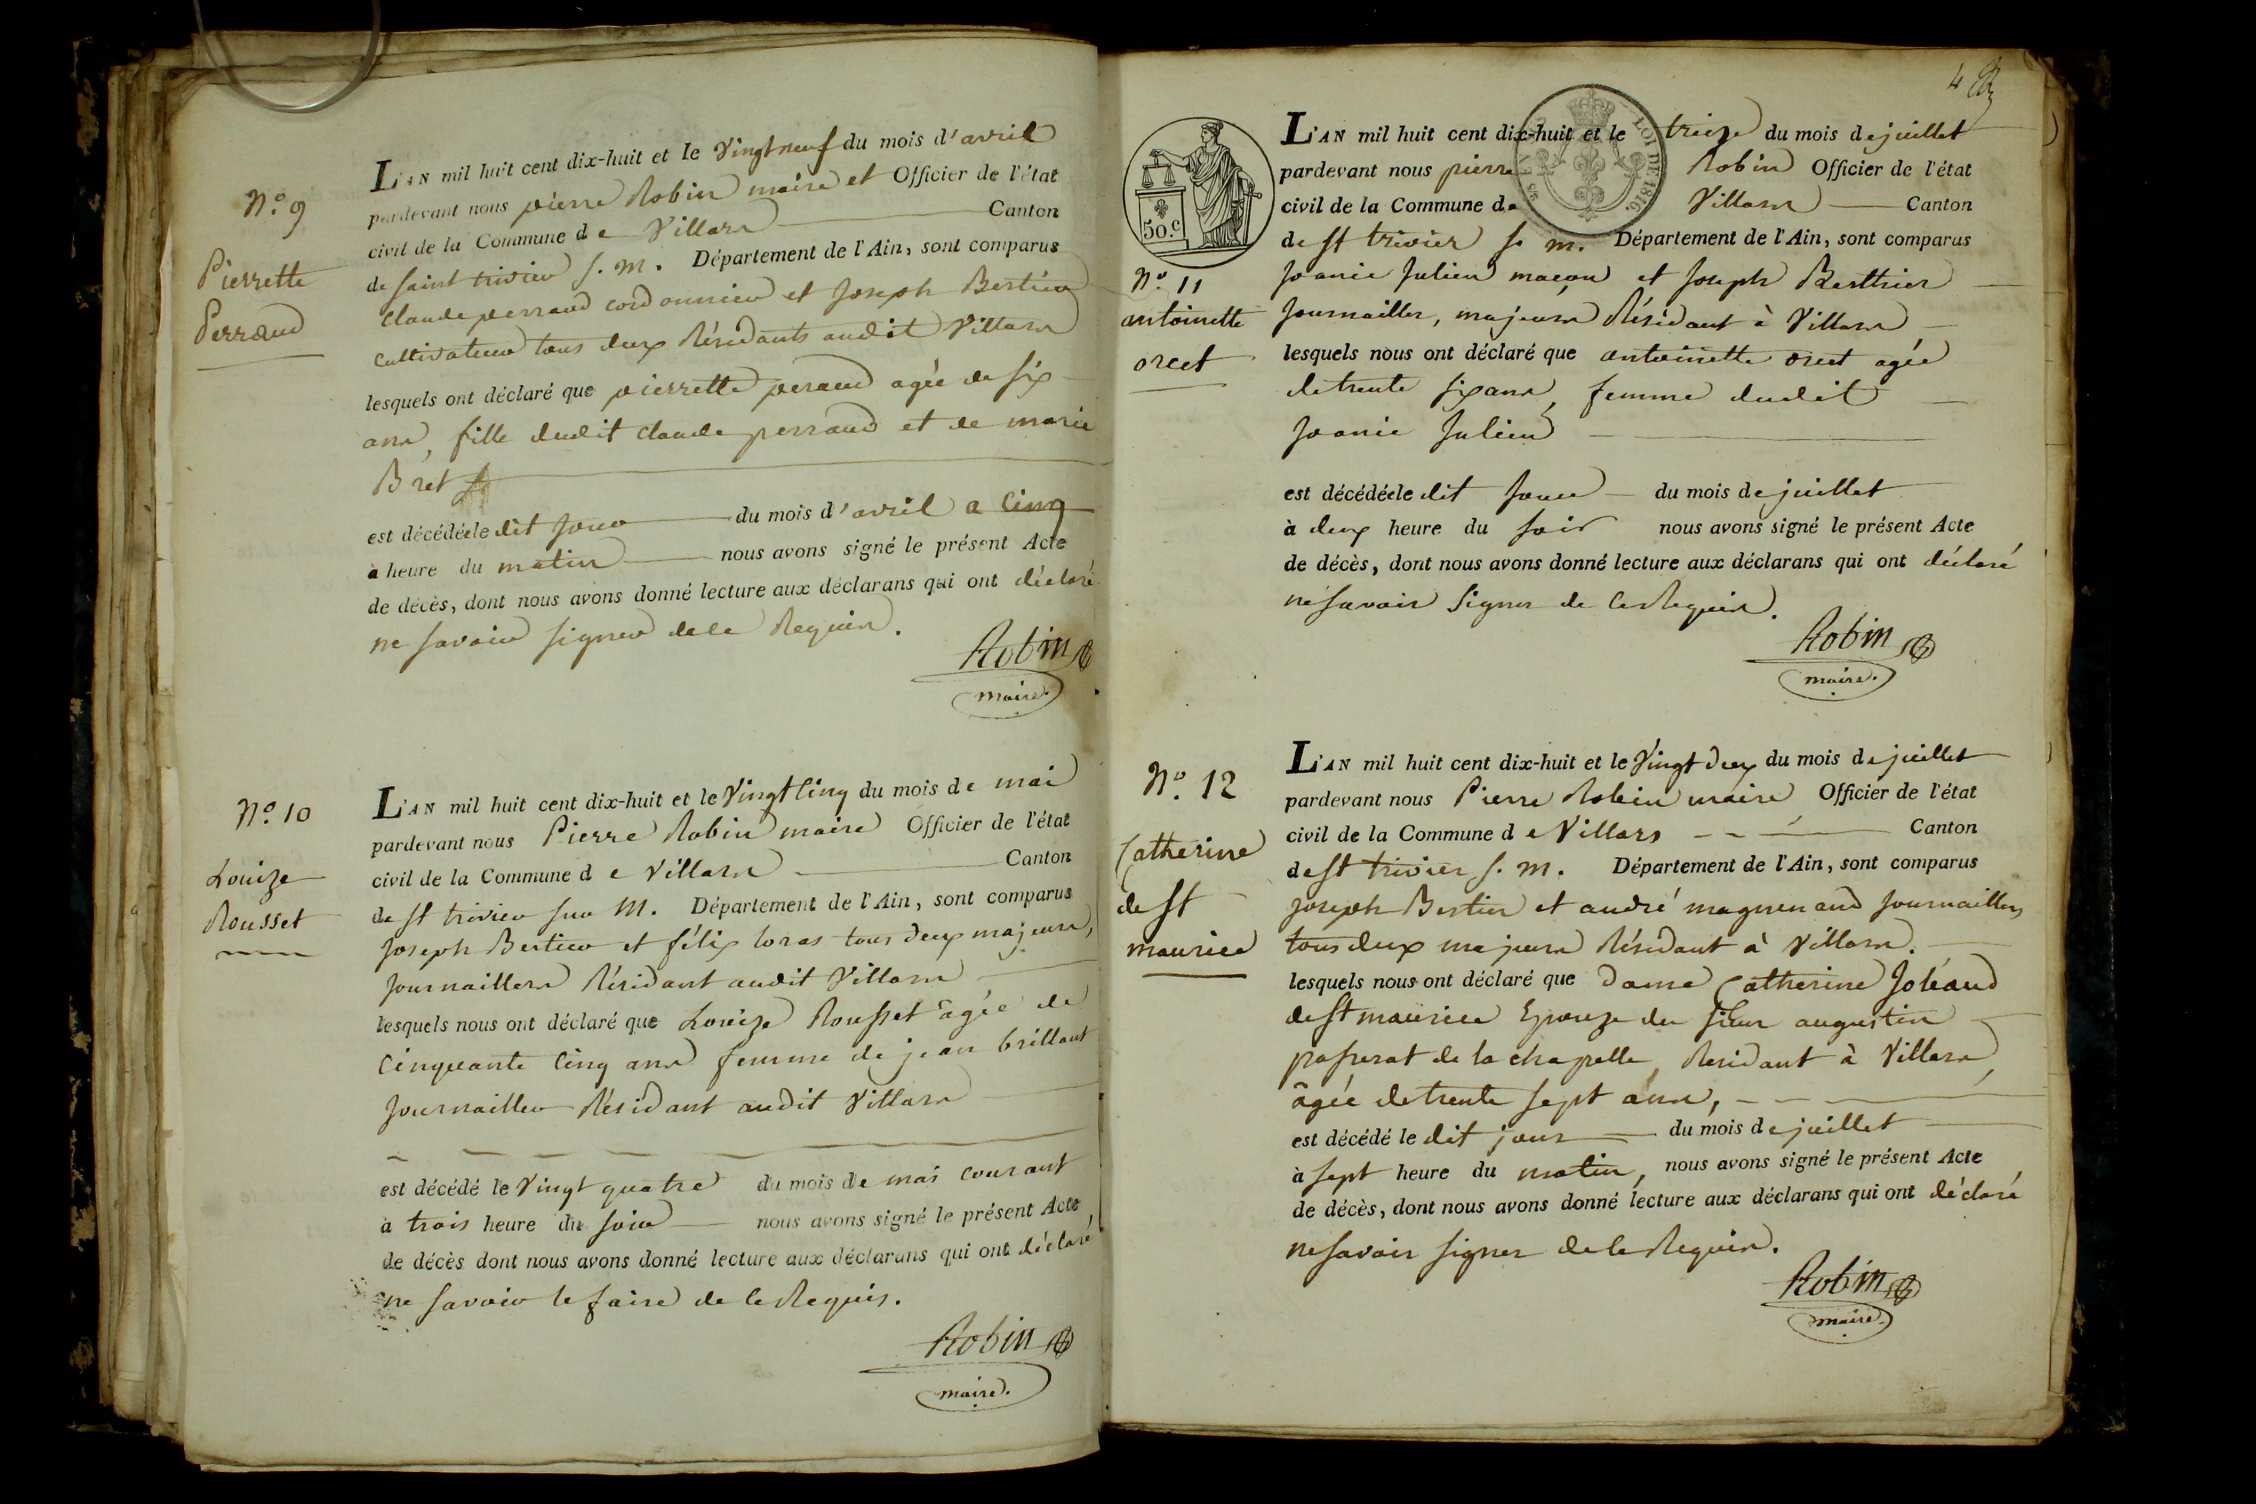 N.o 9
Pierrette
Perraud
L'AN mil huit cent dix-huit et le Vingt neuf du mois d'avril
pardevant nous pierre Robin maire et Officier de l'état
civil de la Commune de Villars Canton
de saint trivier s. m. Département de l'Ain, sont comparus
Claude perraud cordonnier et Joseph Bertier
cultivateur tous deux Résidants audit Villars
lesquels ont déclaré que pierrette peraud agée de six
ans, fille dudit Claude perraud et de marie
Bret
est décédée le dit Jour du mois d'avril a Cinq
à heure du matin nous avons signé le présent Acte
de décès, dont nous avons donné lecture aux déclarans qui ont déclaré
ne savoir signer de ce Requis.
Robin
maire.
N.o 10
Louize
Rousset
L'AN mil huit cent dix-huit et le Vingt Cinq du mois de mai
pardevant nous Pierre Robin maire Officier de l'état
civil de la Commune de Villars Canton
de st trivier sur M. Département de l'Ain, sont comparus
Joseph Bertier et félix loras tous deux majeurs,
Journaillers Résidant audit Villars
lesquels nous ont déclaré que Louize Rousset âgée de
Cinquante Cinq ans femme de jean brillant
Journaillier Résidant audit Villars
est décédé le Vingt quatre du mois de mai courant
à trois heure du soir nous avons signé le présent Acte
de décès dont nous avons donné lecture aux déclarans qui ont déclaré
ne savoir le faire de ce Requis.
Robin
maire.
4
50.c
LOI DE 1816.
N.o 11
antoinette
orcet
L'AN mil huit cent dix-huit et le treize du mois de juillet
pardevant nous pierre Robin Officier de l'état
civil de la Commune de Villars Canton
de st trivier s. m. Département de l'Ain, sont comparus
Joanie Julien maçon et Joseph Berthier
Journailler, majeurs Résidant à Villars
lesquels nous ont déclaré que antoinette orcet agée
de trente six ans, femme dudit
Joanie Julien
est décédée le dit Jour du mois de juillet
à deux heure du soir nous avons signé le présent Acte
de décès, dont nous avons donné lecture aux déclarans qui ont déclaré
ne savoir Signer de ce Requis.
Robin
maire.
N.o 12
Catherine
de st
maurice
L'AN mil huit cent dix-huit et le Vingt deux du mois de juillet
pardevant nous Pierre Robin maire Officier de l'état
civil de la Commune de Villars Canton
de st trivier s. m. Département de l'Ain, sont comparus
Joseph Bertier et andré magnenaud Journaillers
tous deux majeurs Résidant à Villars.
lesquels nous ont déclaré que dame Catherine
de st maurice Epouze du sieur augustin
passerat de la chapelle, Residant à Villars,
âgée de trente sept ans,
est décédé le dit jour du mois de juillet
à sept heure du matin, nous avons signé le présent Acte
de décès, dont nous avons donné lecture aux déclarans qui ont déclaré
ne savoir signer de ce Requis.
Robin
maire.